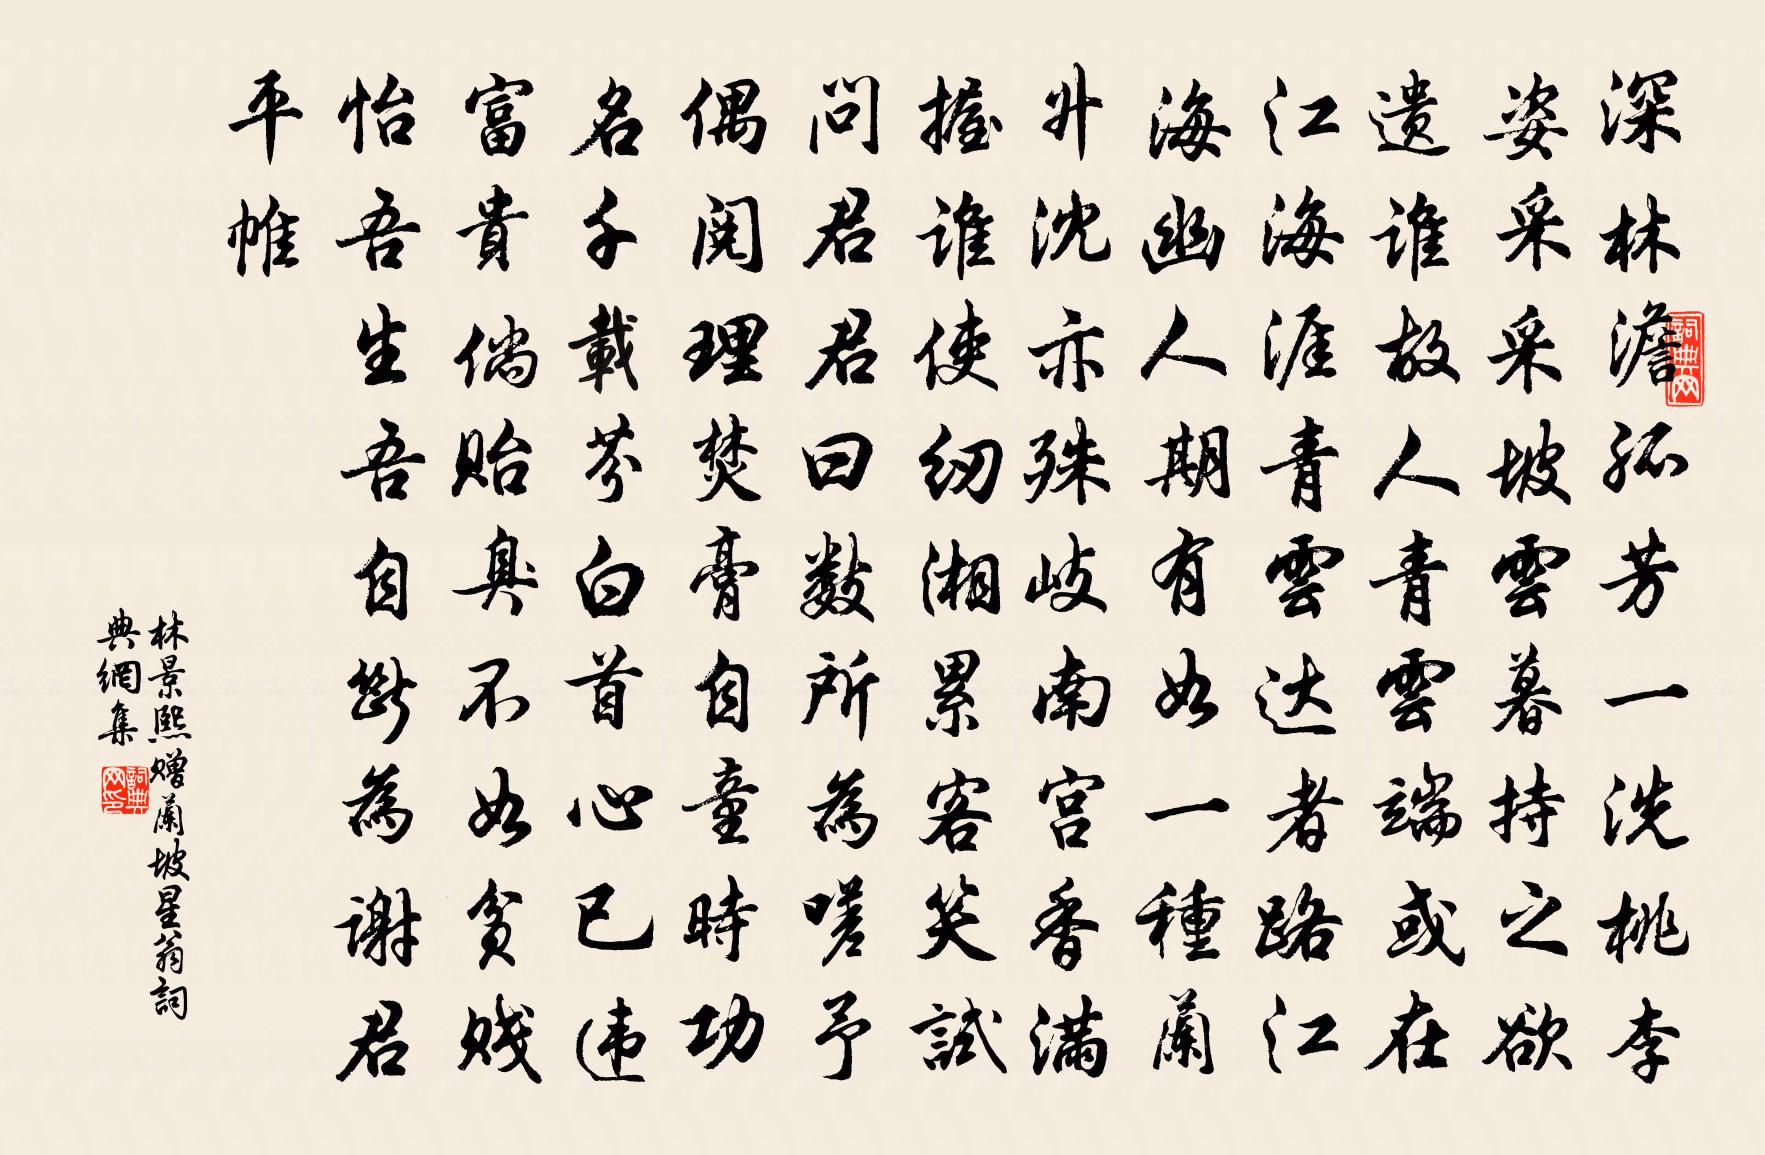 深林澹孤芳一洗桃李
姿采采坡雲暮持之欲
遗谁故人青雲端或在
江海涯青雲达者路江
海幽人期有如一種蘭
升沈亦殊岐南宫香满
握谁使纫湘累客笑試
问君君曰数所為嗟予
偶阅理焚膏自童時功
名千載芬白首心已违
富貴倘贻臭不如贫贱
怡吾生吾自断為谢君
平帷
林景熙赠蘭坡星翁詞
典網集
詞典网
詞典网印